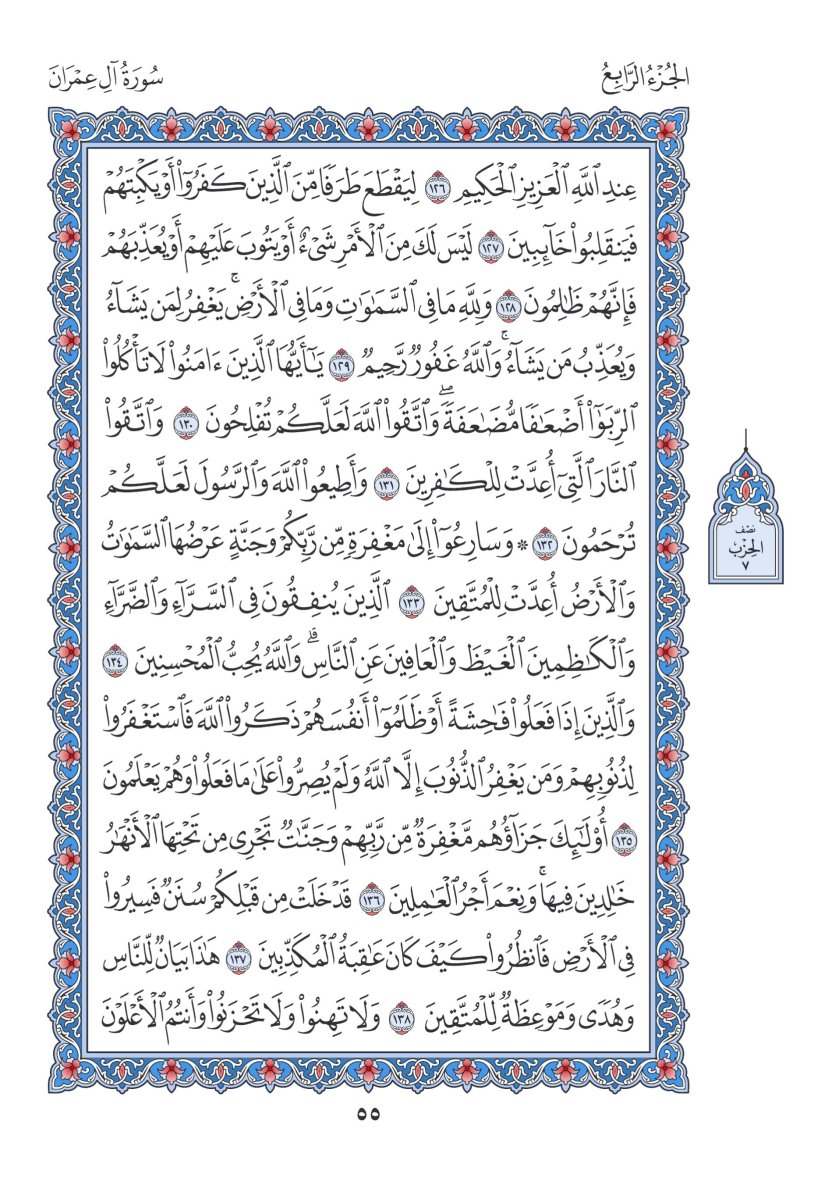 الجُزْءُ الرَّابِعُ
سُورَةُ آلِ عِمْرَانَ
عِندِ ٱللَّهِ ٱلْعَزِيزِ ٱلْحَكِيمِ ١٢٦ لِيَقْطَعَ طَرَفًا مِّنَ ٱلَّذِينَ كَفَرُوٓا۟ أَوْ يَكْبِتَهُمْ
فَيَنقَلِبُوا۟ خَآئِبِينَ ١٢٧ لَيْسَ لَكَ مِنَ ٱلْأَمْرِ شَىْءٌ أَوْ يَتُوبَ عَلَيْهِمْ أَوْ يُعَذِّبَهُمْ
فَإِنَّهُمْ ظَـٰلِمُونَ ١٢٨ وَلِلَّهِ مَا فِى ٱلسَّمَـٰوَٰتِ وَمَا فِى ٱلْأَرْضِ ۚ يَغْفِرُ لِمَن يَشَآءُ
وَيُعَذِّبُ مَن يَشَآءُ ۚ وَٱللَّهُ غَفُورٌ رَّحِيمٌ ١٢٩ يَـٰٓأَيُّهَا ٱلَّذِينَ ءَامَنُوا۟ لَا تَأْكُلُوا۟
ٱلرِّبَوٰٓا۟ أَضْعَـٰفًا مُّضَـٰعَفَةً ۖ وَٱتَّقُوا۟ ٱللَّهَ لَعَلَّكُمْ تُفْلِحُونَ ١٣٠ وَٱتَّقُوا۟
ٱلنَّارَ ٱلَّتِىٓ أُعِدَّتْ لِلْكَـٰفِرِينَ ١٣١ وَأَطِيعُوا۟ ٱللَّهَ وَٱلرَّسُولَ لَعَلَّكُمْ
تُرْحَمُونَ ١٣٢ ۞ وَسَارِعُوٓا۟ إِلَىٰ مَغْفِرَةٍ مِّن رَّبِّكُمْ وَجَنَّةٍ عَرْضُهَا ٱلسَّمَـٰوَٰتُ
وَٱلْأَرْضُ أُعِدَّتْ لِلْمُتَّقِينَ ١٣٣ ٱلَّذِينَ يُنفِقُونَ فِى ٱلسَّرَّآءِ وَٱلضَّرَّآءِ
وَٱلْكَـٰظِمِينَ ٱلْغَيْظَ وَٱلْعَافِينَ عَنِ ٱلنَّاسِ ۗ وَٱللَّهُ يُحِبُّ ٱلْمُحْسِنِينَ ١٣٤
وَٱلَّذِينَ إِذَا فَعَلُوا۟ فَـٰحِشَةً أَوْ ظَلَمُوٓا۟ أَنفُسَهُمْ ذَكَرُوا۟ ٱللَّهَ فَٱسْتَغْفَرُوا۟
لِذُنُوبِهِمْ وَمَن يَغْفِرُ ٱلذُّنُوبَ إِلَّا ٱللَّهُ وَلَمْ يُصِرُّوا۟ عَلَىٰ مَا فَعَلُوا۟ وَهُمْ يَعْلَمُونَ
١٣٥ أُو۟لَـٰٓئِكَ جَزَآؤُهُم مَّغْفِرَةٌ مِّن رَّبِّهِمْ وَجَنَّـٰتٌ تَجْرِى مِن تَحْتِهَا ٱلْأَنْهَـٰرُ
خَـٰلِدِينَ فِيهَا ۚ وَنِعْمَ أَجْرُ ٱلْعَـٰمِلِينَ ١٣٦ قَدْ خَلَتْ مِن قَبْلِكُمْ سُنَنٌ فَسِيرُوا۟
فِى ٱلْأَرْضِ فَٱنظُرُوا۟ كَيْفَ كَانَ عَـٰقِبَةُ ٱلْمُكَذِّبِينَ ١٣٧ هَـٰذَا بَيَانٌ لِّلنَّاسِ
وَهُدًى وَمَوْعِظَةٌ لِّلْمُتَّقِينَ ١٣٨ وَلَا تَهِنُوا۟ وَلَا تَحْزَنُوا۟ وَأَنتُمُ ٱلْأَعْلَوْنَ
نِصْف
الحِزْبِ
٧
٥٥